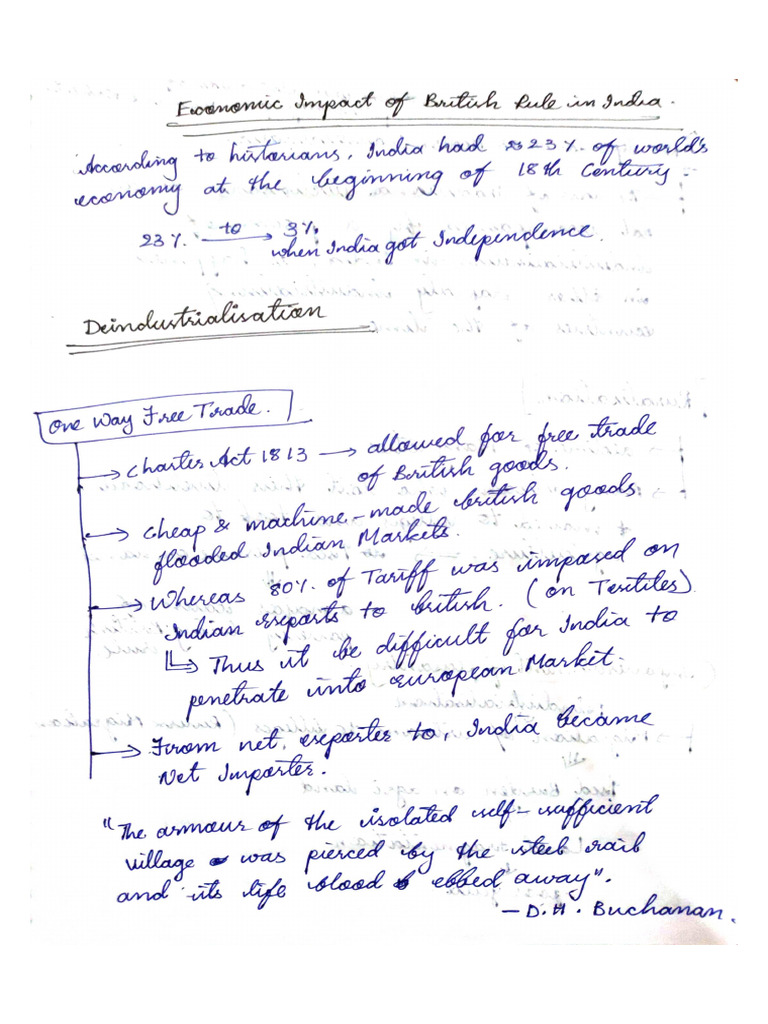 Economic Impact of British Rule in India.
According to historians, India had 23% of world's
economy at the beginning of 18th Century.
23% to → 3%
when India got Independence.
Deindustrialisation
One Way Free Trade.
→ Charter Act 1813 → allowed for free trade
of British goods.
→ Cheap & machine-made british goods
flooded Indian Markets.
→ Whereas 80% of Tariff was imposed on
Indian Exports to british. (on Textiles)
↳ Thus it be difficult for India to
penetrate into european Market.
→ From net exporter to, India became
Net Importer.
"The armour of the isolated self-sufficient
village was pierced by the steel rail
and its life blood ebbed away".
– D.H. Buchanan.